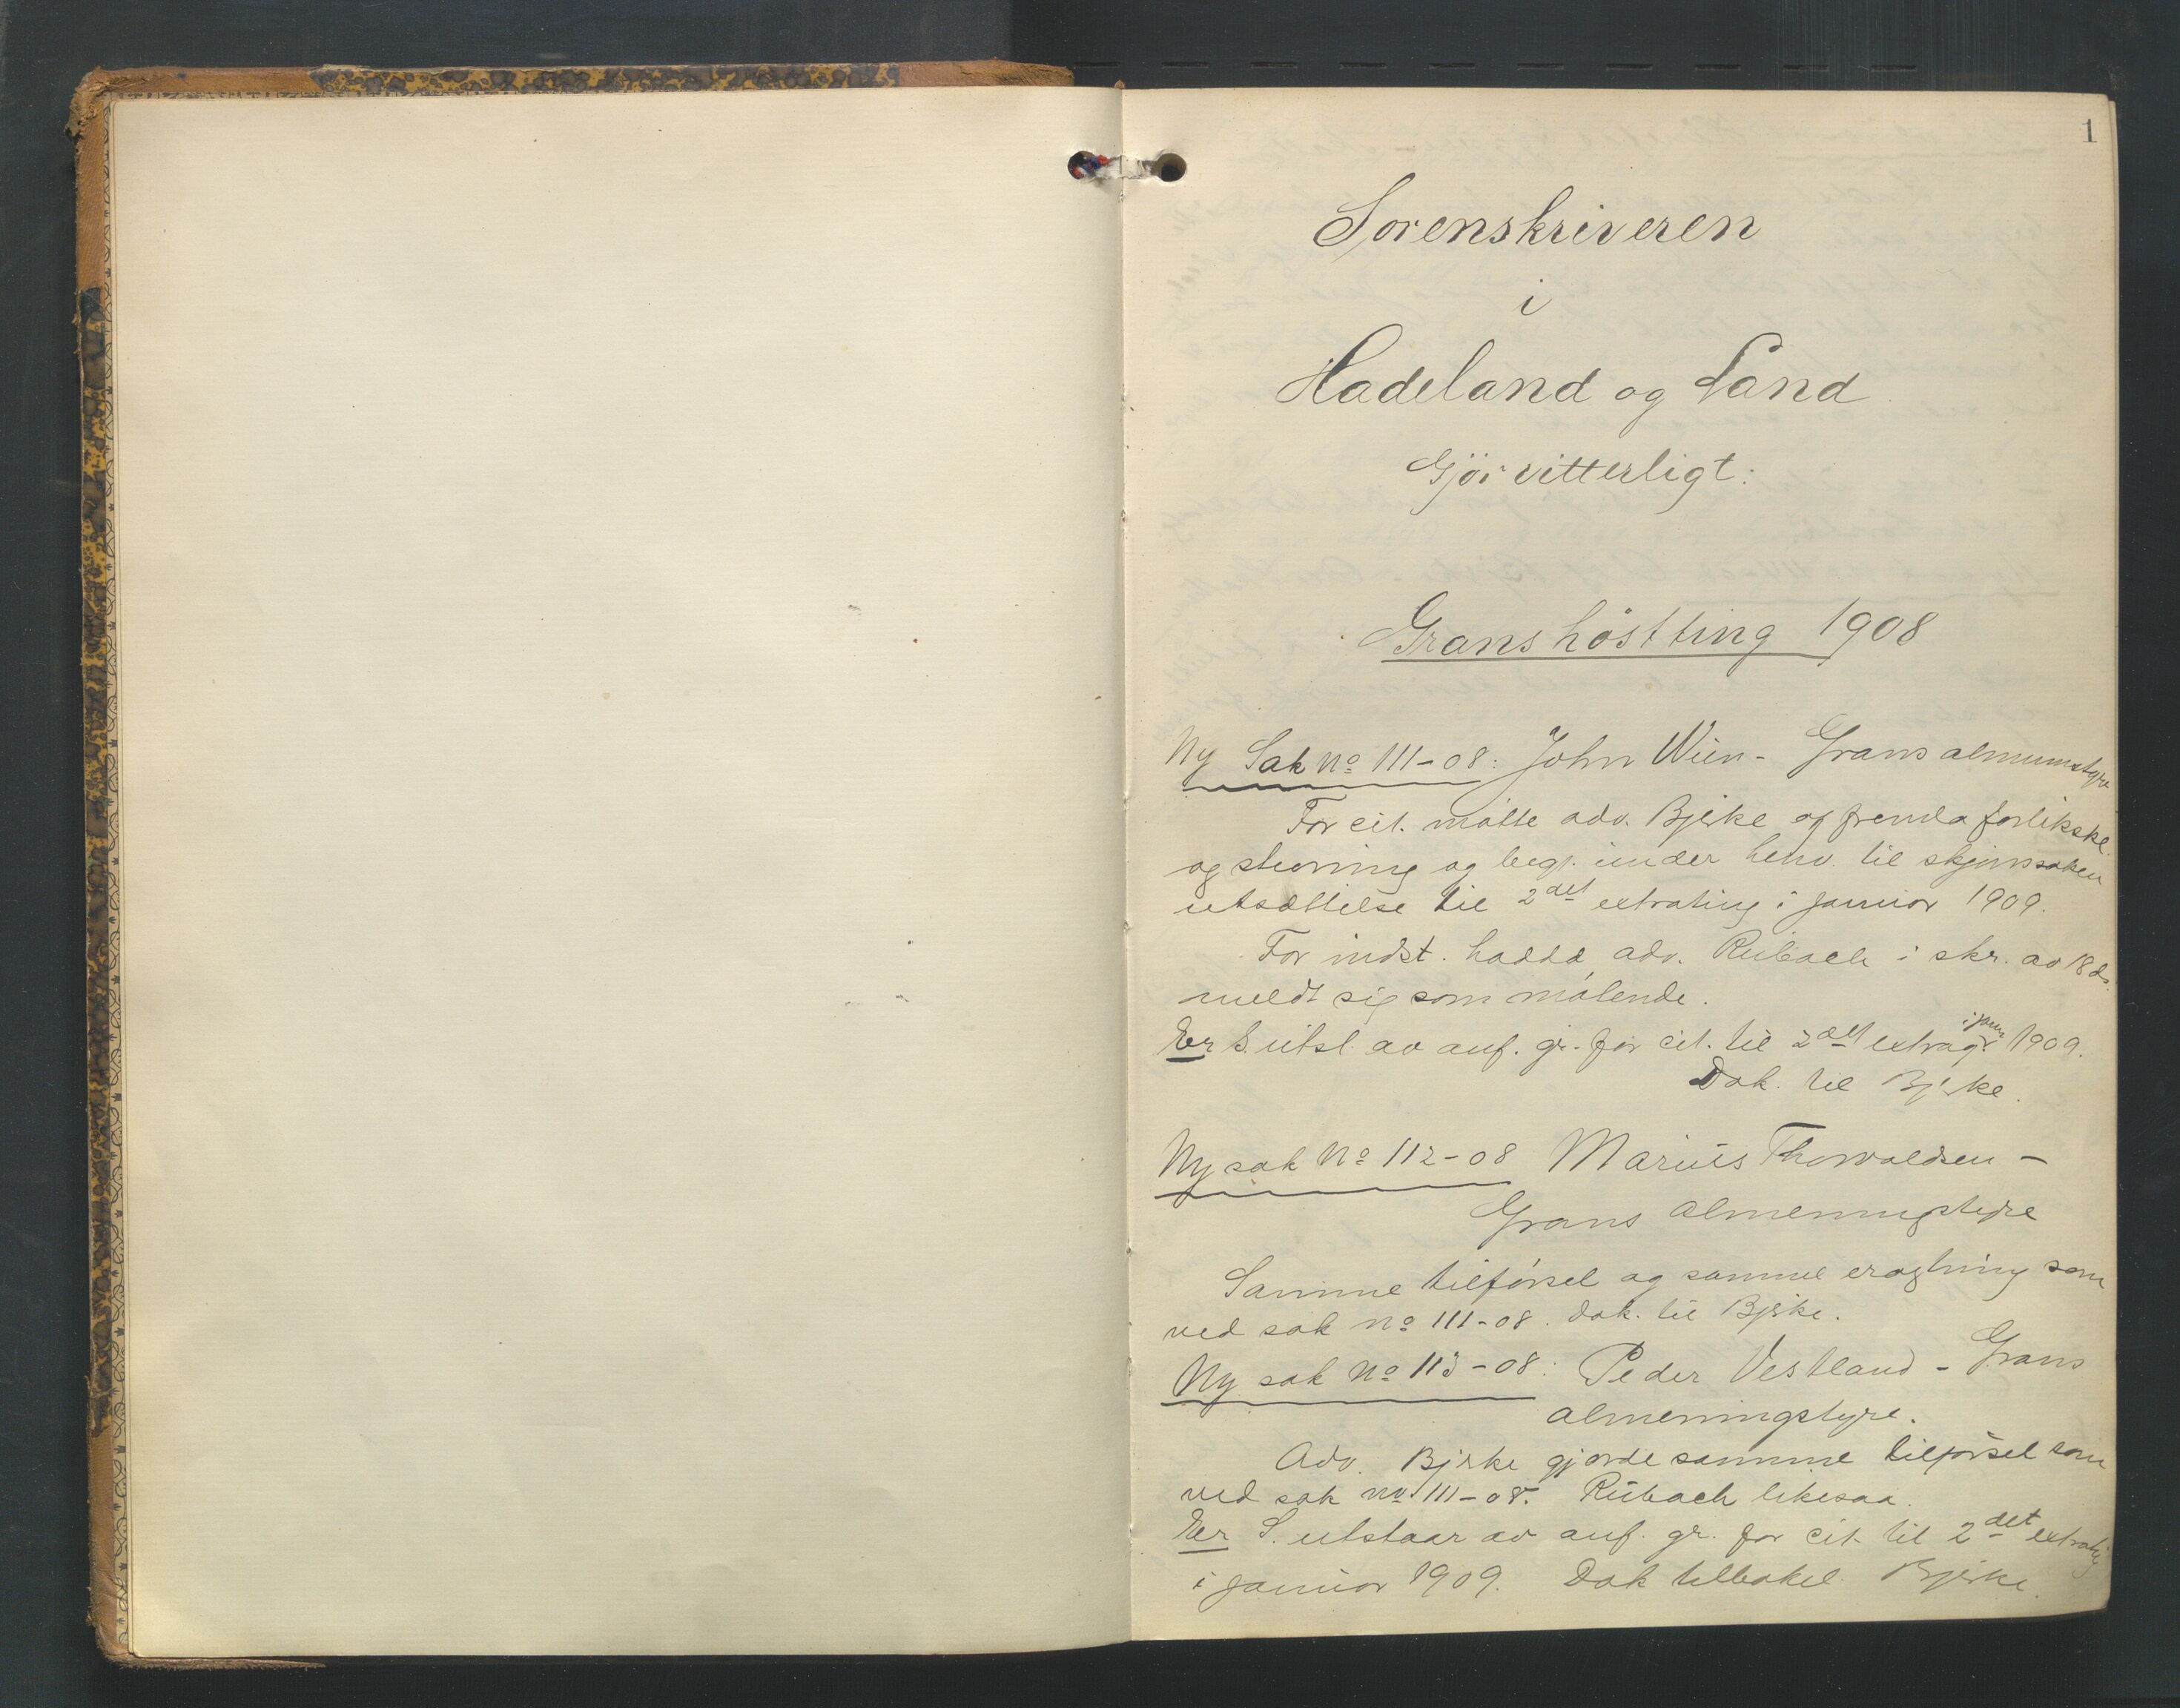 1
Sorenskriveren
i
Hadeland og Land
Gjör vitterligt:
Grans höstting 1908
Ny Sak No 111-08: John Wien - Grans almenningstyre
For cit. mötte adv. Bjerke og fremla forliksskl.
og stevning og begj. under henv. til skjönssaken
utsættelse til 2det extrating i januar 1909.
For indst. hadde adv. Rubach i skr. av 18 ds.
meldt sig som mötende.
Er S. utst. av anf. gr. for cit. til 2det extratg. i jan. 1909.
Dok. til Bjerke.
Ny sak No 112-08 Marius Thorvaldsen -
Grans almenningstyre
Samme tilförsel og samme eragtning som
ved sak no 111-08. Dok. til Bjerke.
Ny sak No 113-08: Peder Vestland - Grans
almenningstyre.
Adv. Bjerke gjorde samme tilförsel som
ved sak no 111-08. Rubach likesaa.
Er S. utstaar av anf. gr. for cit. til 2det extratig
i januar 1909. Dok tilbakel. Bjerke.